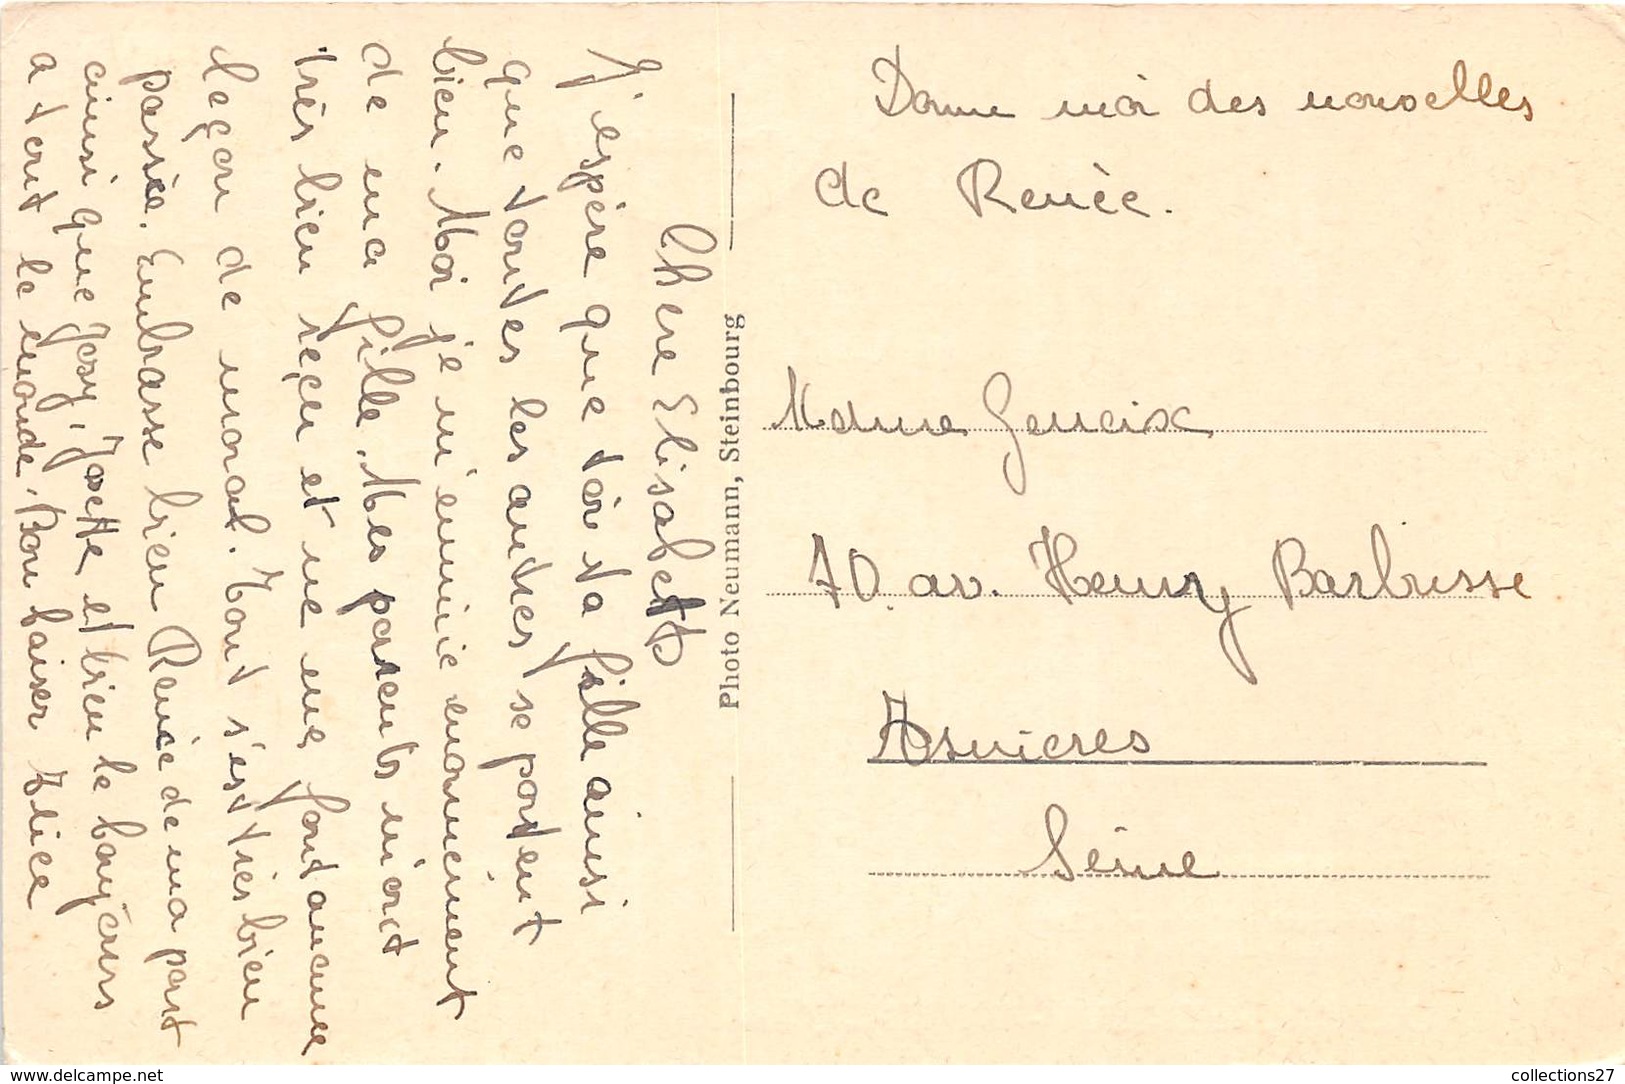 Chere Elisabeth
J'espère que toi ta fille ainsi
que toutes les autres se portent
bien. Moi je m'ennuie énormément
de ma fille. Mes parents m'ont
très bien reçu et ne me font aucune
leçon de moral. Tout s'est très bien
passée. Embrasse bien Renée de ma part
ainsi que Josy, Josette et bien le bonjours
a tout le monde. Bon baiser Alice
Donne moi des nouvelles
de Renée.
Mdme Geneix
70. av. Henry Barbusse
Asnieres
Seine
Photo Neumann, Steinbourg
www.delcampe.net
collections27